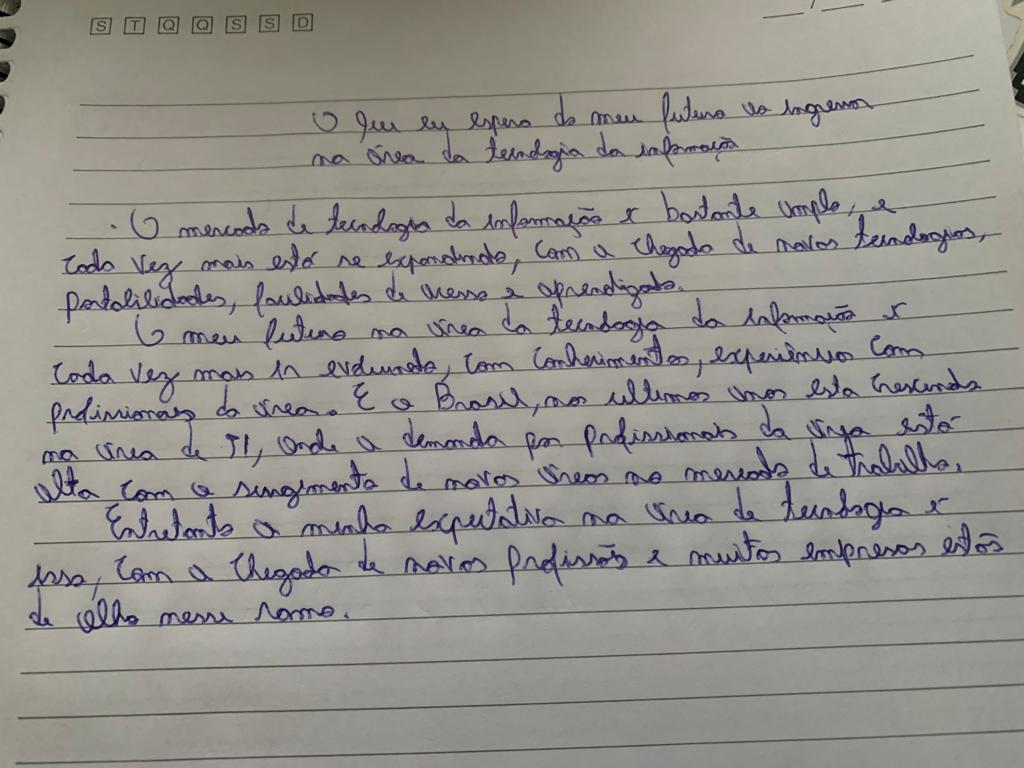 S T Q Q S S D
O que eu espero do meu futuro ao ingressar
na área da tecnologia da informação
O mercado de tecnologia da informação é bastante amplo, e
cada vez mais está se expandindo, com a chegada de novas tecnologias,
portabilidades, facilidades de acesso e aprendizado.
O meu futuro na área da tecnologia da informação é
cada vez mais ir evoluindo, com conhecimentos, experiências com
profissionais da área. E o Brasil, nos ultimos anos esta crescendo
na área de TI, onde a demanda por profissionais da área está
alta com o surgimento de novas áreas no mercado de trabalho.
Entretanto a minha expectativa na área de tecnologia é
essa, com a chegada de novas profissões e muitas empresas estão
de olho nesse ramo.